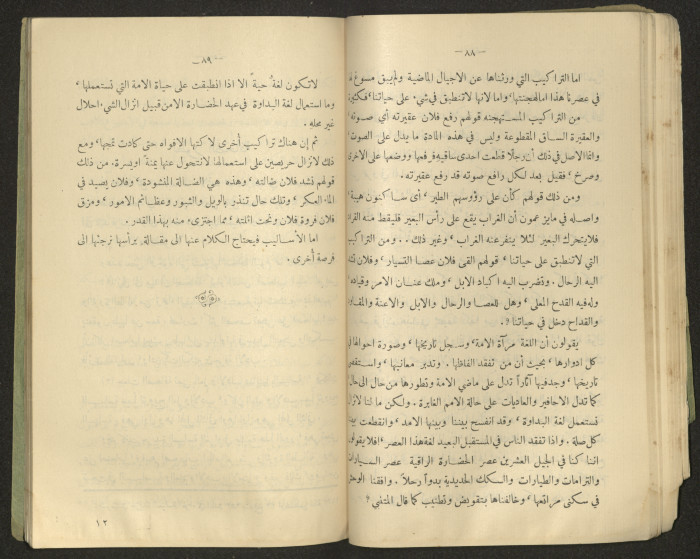 — ٨٨ —
اما التراكيب التي ورثناها عن الاجيال الماضية ولم يبق مسوغ
في عصرنا هذا اما لهجنتها، واما لانها لا تنطبق في شيء على حياتنا، فكثيرة
من التراكيب المستهجنه قولهم رفع فلان عقيرته أي صوته
والعقيرة الساق المقطوعة وليس في هذه المادة ما يدل على الصوت
وانما الاصل في ذلك أن رجلاً قطعت احدى ساقيه فرفعها ووضعها على الاخرى
وصرخ، فقيل بعد لكل رافع صوته قد رفع عقيرته.
ومن ذلك قولهم كأن على رؤوسهم الطير، أي ساكنون هيبة
واصله في ما يزعمون أن الغراب يقع على رأس البعير فليقط منه القراد
فلا يتحرك البعير لئلا ينفر عنه الغراب، وغير ذلك.. ومن التراكيب
التي لا تنطبق على حياتنا، قولهم القى فلان عصا التسيار، وفلان تشد
اليه الرحال. وتضرب اليه اكباد الابل، وملك عنان الامر وقياده
وله فيه القدح المعلى، وهل للعصا والرحال والابل والاعنة والمقاود
والقداح دخل في حياتنا؟.
يقولون أن اللغة مرآة الامة، وسجل تاريخها، وصورة احوالها في
كل ادوارها، بحيث أن من تفقد الفاظها. وتدبر معانيها، واستقصى
تاريخها، وجد فيها آثاراً تدل على ماضي الامة وتطورها من حال الى حال
كما تدل الاحافير والعاديات على حالة الامم الغابرة. ولكن ما لنا لانزال
نستعمل لغة البداوة، وقد انفسح بيننا وبينها الامد، وانقطعت
كل صلة. واذا تفقد الناس في المستقبل البعيد لغة هذا العصر، افلا يقولون
اننا كنا في الجيل العشرين عصر الحضارة الراقية عصر السيارات
والترامات والطيارات والسكك الحديدية بدواً رحلاً. وافقنا الوحش
في سكنى مراتعها، وخالفناها بتقويض وتطنيب كما قال المتنبي؟
— ٨٩ —
لا تكون لغةٌ حيةً الا اذا انطبقت على حياة الامة التي تستعملها،
وما استعمال لغة البداوة في عهد الحضارة الا من قبيل انزال الشيء احلال
غير محله.
ثم إن هناك تراكيب أخرى لاكتها الافواه حتى كادت تمجها، ومع
ذلك لا نزال حريصين على استعمالها لا نتحول عنها يمنة او يسرة. من ذلك
قولهم نشد فلان ضالته، وهذه هي الضالة المنشودة، وفلان يصيد في
الماء العكر، وتلك حال تنذر بالويل والثبور وعظائم الامور، ومزق
فلان فروة فلان ونحت اثلته، مما اجتزىء منه بهذا القدر.
اما الأساليب فيحتاج الكلام عنها الى مقالة برأسها نرجئها الى
فرصة أخرى.
١٢